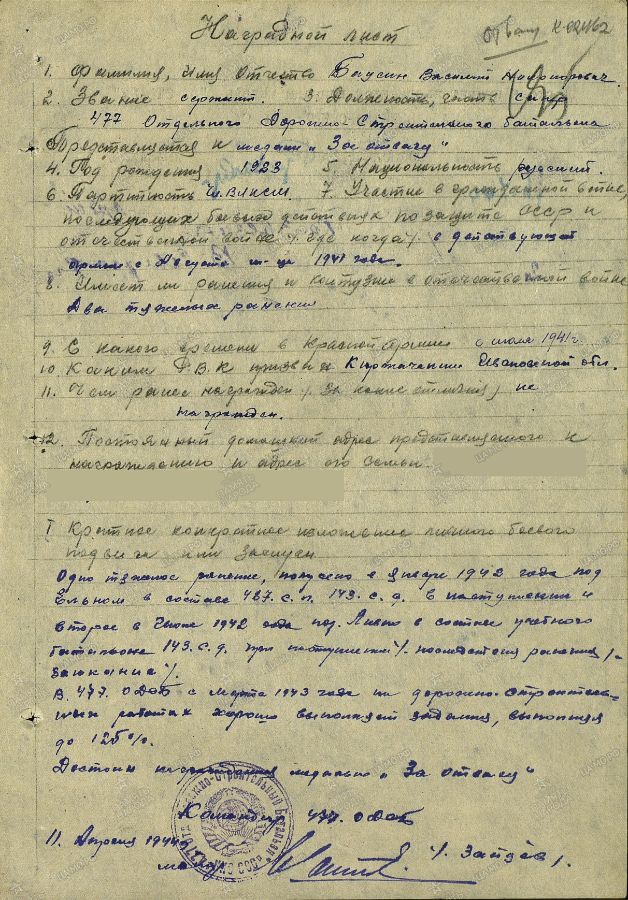 Наградной лист
1. Фамилия, Имя Отчество Баусин Василий
2. Звание сержант. 3. Должность, часть
477 Отдельного Дорожно-Строительного батальона
Представляется к медали „За отвагу"
4. Год рождения 1923 5. Национальность русский.
6. Партийность чл. ВЛКСМ. 7. Участие в гражданской войне,
последующих боевых действиях по защите СССР и
отечественной войне /где когда/. в действующей
армии с Августа м-ца 1941 года.
8. Имеет ли ранения и контузии в отечественной войне
Два тяжелых ранения
9. С какого времени в Красной Армии с июля 1941 г.
10. Каким Р.В.К призван Киржачским Ивановской обл.
11. Чем ранее награжден /за какие отличия/ не
награжден.
12. Постоянный домашний адрес представляемого к
награждению и адрес его семьи.
I Краткое конкретное изложение личного боевого
подвига или заслуг
Одно тяжелое ранение, получено в январе 1942 года под
Ельном в составе 487. с.п. 143. с.д. в наступлении и
второе в Июне 1942 года под Ливно в составе учебного
батальона 143. с.д. при наступлении /. последствия ранения /-
заикание /.
В. 477. ОДСБ с Марта 1943 года на дорожно-строитель-
ных работах хорошо выполняет задания, выполняя
до 125%.
Достоин награждения медалью „За отвагу"
Командир 477. ОДСБ
11. Апреля 1944
/. Зайцев /.